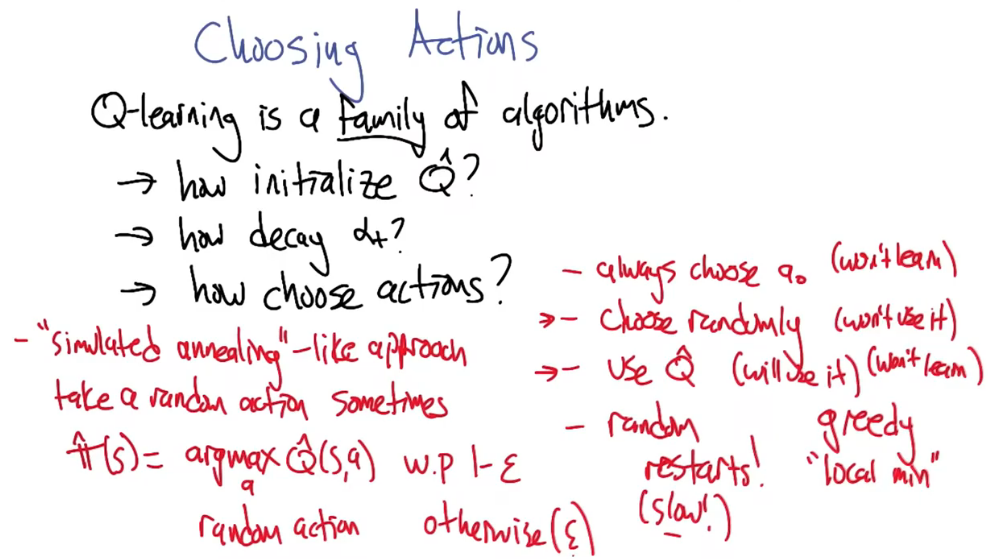 Choosing Actions
Q-learning is a family of algorithms.
→ how initialize Q̂?
→ how decay αt?
→ how choose actions?
- always choose a₀ (won't learn)
→ - choose randomly (won't use it)
→ - use Q̂ (will use it) (won't learn)
- random greedy
restarts! "local min"
(slow!)
- "simulated annealing"-like approach
take a random action sometimes
π̂(s) = argmax Q̂(s,a) w.p 1-ε
a
random action otherwise (ε)